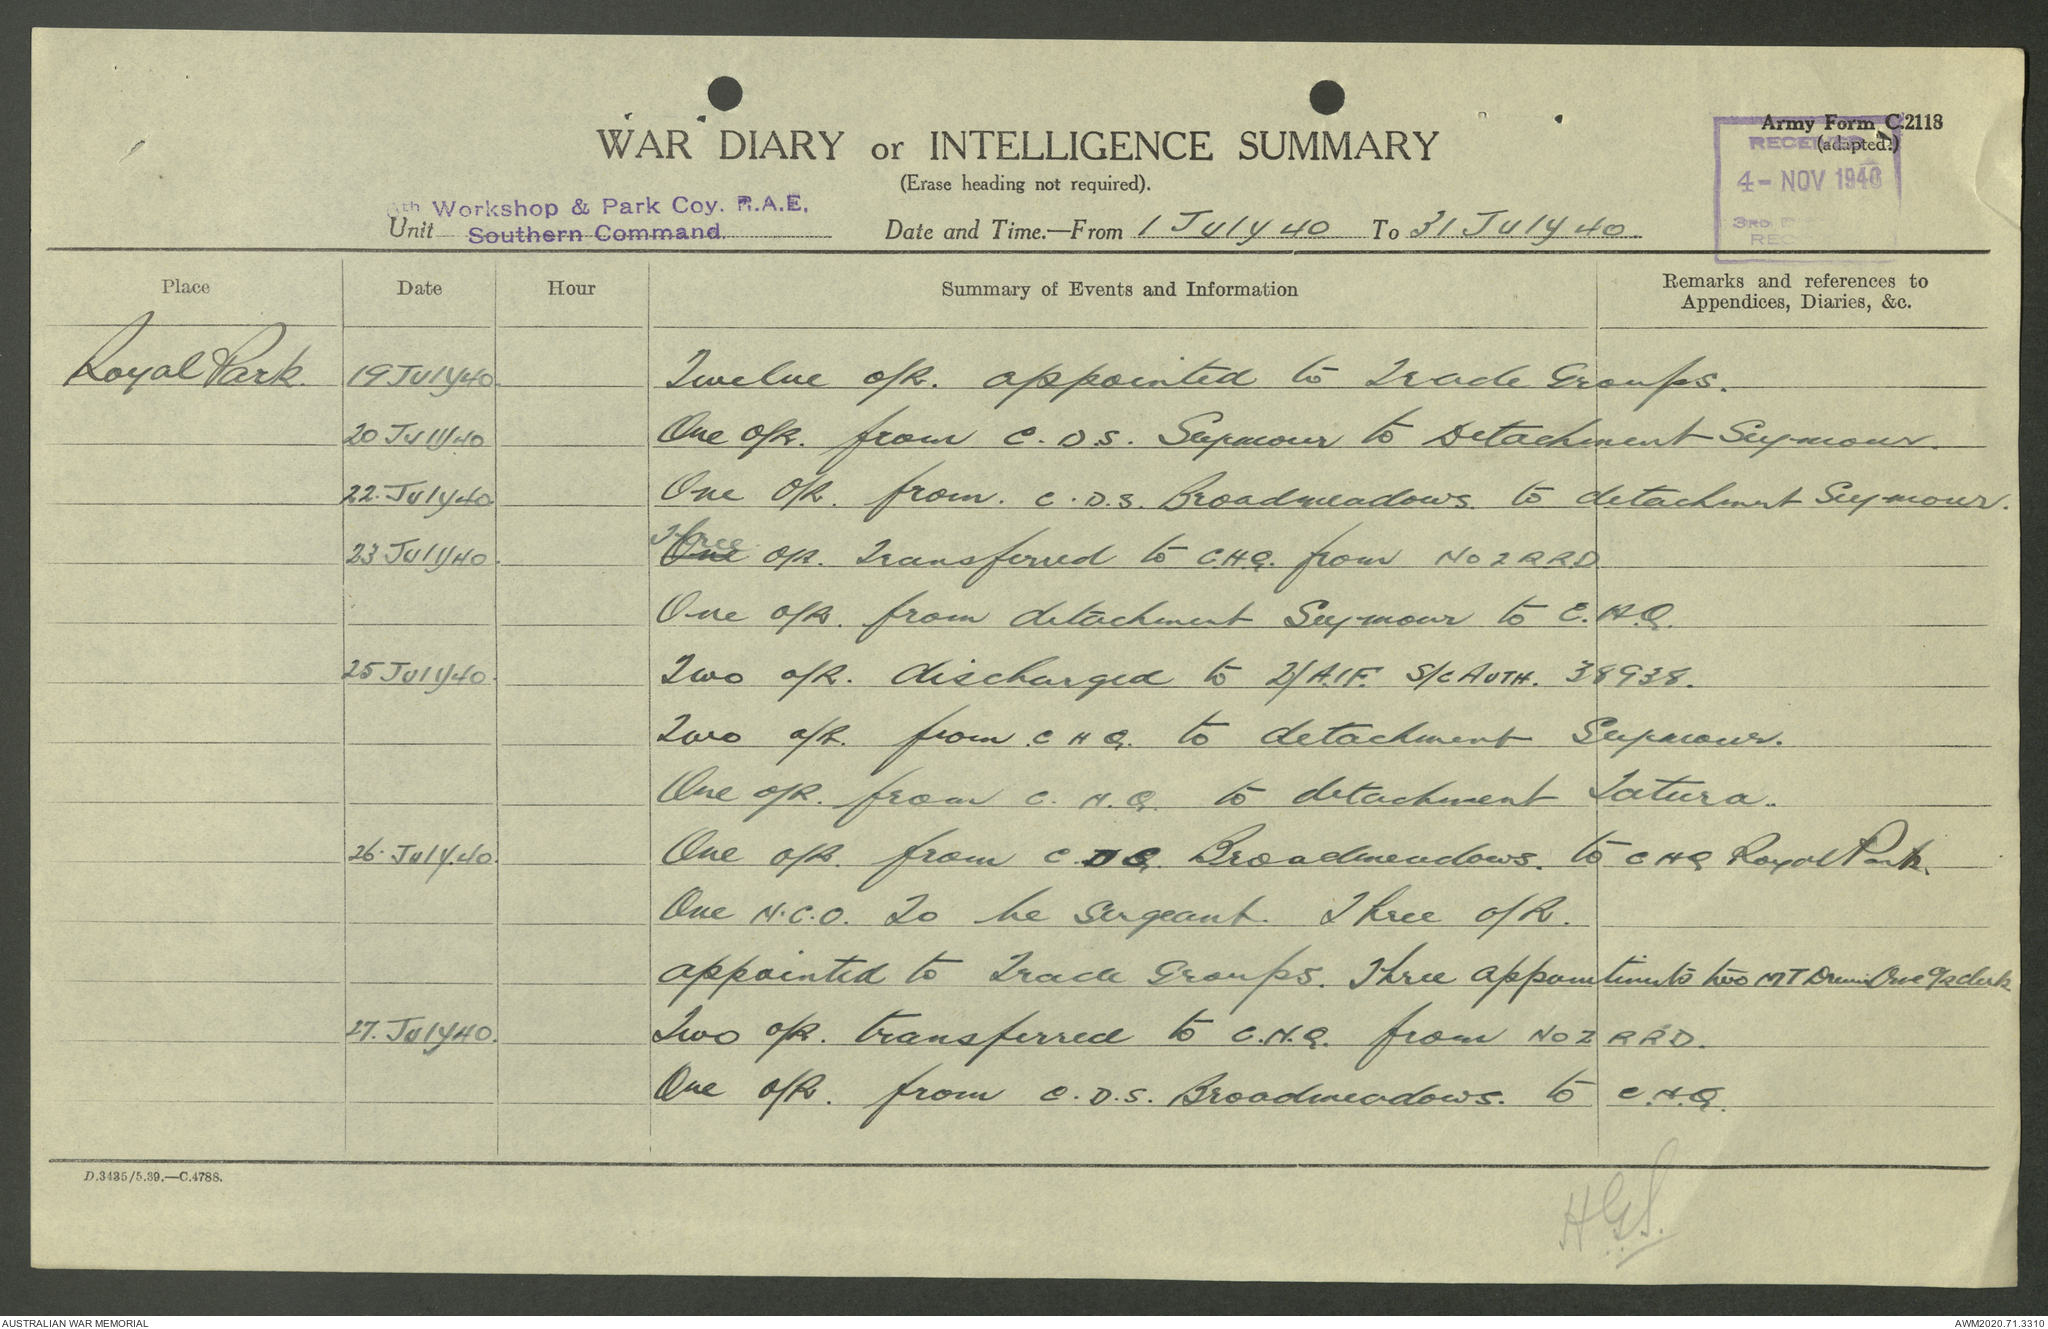 Army Form C.2118
(adapted.)
WAR DIARY or INTELLIGENCE SUMMARY
(Erase heading not required).
RECEIVED
4 - NOV 1940
3RD
REC
6th Workshop & Park Coy. R.A.E.
Unit Southern Command.
Date and Time.—From 1 July 40 To 31 July 40.
Place Date Hour Summary of Events and Information Remarks and references to Appendices, Diaries, &c.
Royal Park. 19 July 40. Twelve o/R. appointed to Trade Groups.
20 July 40 One o/R. from C.D.S. Seymour to Detachment Seymour.
22. July 40. One O/R. from. C.D.S. Broadmeadows. to detachment Seymour.
23 July 40. One Three o/R. Transferred to C.H.Q. from No 2 R R D
One o/R. from detachment Seymour to C.H.Q.
25 July 40. Two o/R. discharged to 2/A.I.F. S/C AUTH. 38938.
Two o/R. from C H Q. to detachment Seymour.
One o/R. from C. H. Q. to detachment Tatura.
26. July. 40. One o/R. from C. D Broadmeadows. to C H Q Royal Park.
One N.C.O. To be Sergeant. Three o/R.
appointed to Trade Groups. Three appointments two MT Drivers One clerk
27. July 40. Two o/R. transferred to C.H.Q. from No 2 R R D.
One o/R. from C.D.S. Broadmeadows. to C.H.Q.
D.3435/5.39.—C.4788.
HGS.
AUSTRALIAN WAR MEMORIAL
AWM2020.71.3310